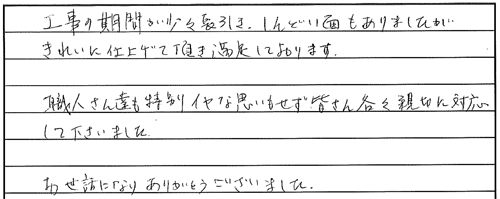 工事の期間が少々長引き、しんどい面もありましたが
きれいに仕上げて頂き満足しております。
職人さん達も特別イヤな思いもせず皆さん各々親切に対応
して下さいました
お世話になりありがとうございました。